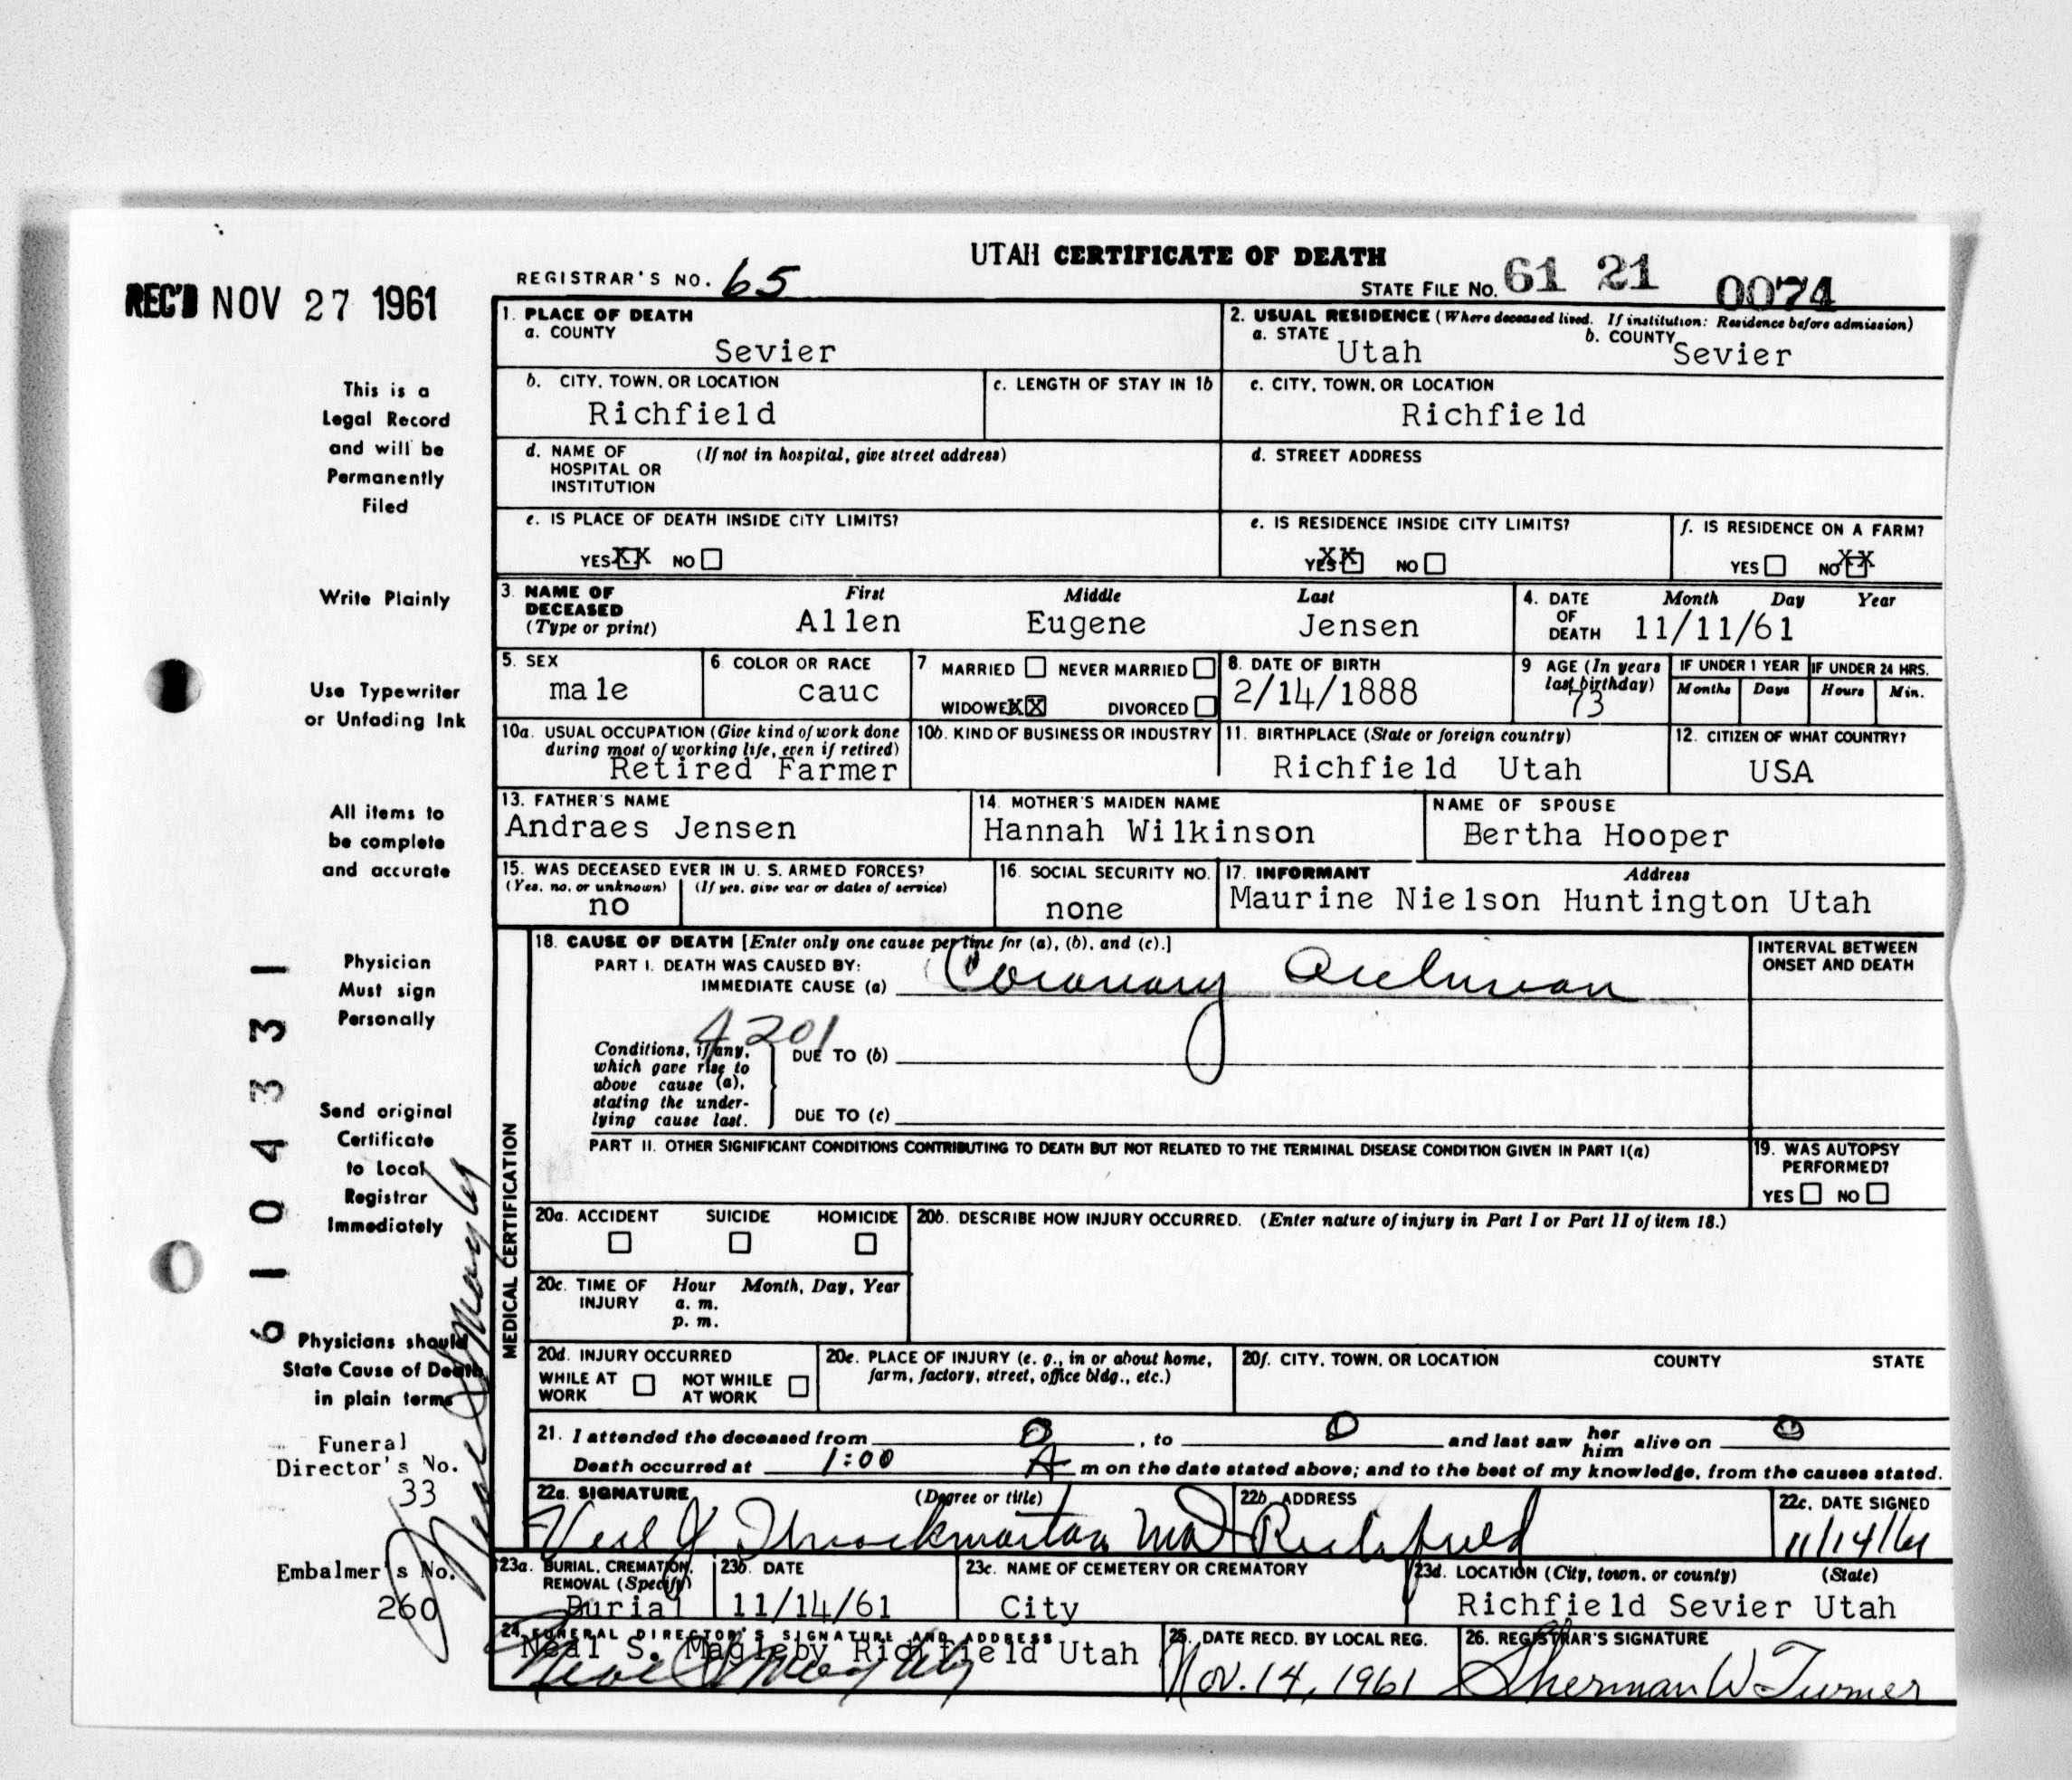 UTAH CERTIFICATE OF DEATH
REGISTRAR'S NO. 65
STATE FILE NO. 61 21 0074
REC'D NOV 27 1961
This is a
Legal Record
and will be
Permanently
Filed
Write Plainly
Use Typewriter
or Unfading Ink
All items to
be complete
and accurate
Physician
Must sign
Personally
Send original
Certificate
to Local
Registrar
Immediately
Physicians should
State Cause of Death
in plain terms
Funeral
Director's No.
33
Embalmer's No.
260
6104331
Neal S Magleby
1. PLACE OF DEATH
a. COUNTY
Sevier
2. USUAL RESIDENCE (Where deceased lived. If institution: Residence before admission)
a. STATE Utah b. COUNTY Sevier
b. CITY, TOWN, OR LOCATION
Richfield
c. LENGTH OF STAY IN 1b
c. CITY, TOWN, OR LOCATION
Richfield
d. NAME OF (If not in hospital, give street address)
HOSPITAL OR
INSTITUTION
d. STREET ADDRESS
e. IS PLACE OF DEATH INSIDE CITY LIMITS?
YES XX NO
e. IS RESIDENCE INSIDE CITY LIMITS?
YES XX NO
f. IS RESIDENCE ON A FARM?
YES NO XX
3. NAME OF DECEASED (Type or print)
First Middle Last
Allen Eugene Jensen
4. DATE OF DEATH Month Day Year
11/11/61
5. SEX
male
6. COLOR OR RACE
cauc
7. MARRIED NEVER MARRIED
WIDOWED XX DIVORCED
8. DATE OF BIRTH
2/14/1888
9 AGE (In years
last birthday)
73
IF UNDER 1 YEAR IF UNDER 24 HRS.
Months Days Hours Min.
10a. USUAL OCCUPATION (Give kind of work done
during most of working life, even if retired)
Retired Farmer
10b. KIND OF BUSINESS OR INDUSTRY
11. BIRTHPLACE (State or foreign country)
Richfield Utah
12. CITIZEN OF WHAT COUNTRY?
USA
13. FATHER'S NAME
Andraes Jensen
14. MOTHER'S MAIDEN NAME
Hannah Wilkinson
NAME OF SPOUSE
Bertha Hooper
15. WAS DECEASED EVER IN U. S. ARMED FORCES?
(Yes, no, or unknown) (If yes, give war or dates of service)
no
16. SOCIAL SECURITY NO.
none
17. INFORMANT Address
Maurine Nielson Huntington Utah
MEDICAL CERTIFICATION
18. CAUSE OF DEATH [Enter only one cause per line for (a), (b), and (c).]
PART I. DEATH WAS CAUSED BY:
IMMEDIATE CAUSE (a) Coronary
INTERVAL BETWEEN
ONSET AND DEATH
4201
Conditions, if any,
which gave rise to
above cause (a),
stating the under-
lying cause last.
DUE TO (b)
DUE TO (c)
PART II. OTHER SIGNIFICANT CONDITIONS CONTRIBUTING TO DEATH BUT NOT RELATED TO THE TERMINAL DISEASE CONDITION GIVEN IN PART I(a)
19. WAS AUTOPSY
PERFORMED?
YES NO
20a. ACCIDENT SUICIDE HOMICIDE
20b. DESCRIBE HOW INJURY OCCURRED. (Enter nature of injury in Part I or Part II of item 18.)
20c. TIME OF INJURY Hour Month, Day, Year
a. m.
p. m.
20d. INJURY OCCURRED
WHILE AT WORK NOT WHILE AT WORK
20e. PLACE OF INJURY (e. g., in or about home,
farm, factory, street, office bldg., etc.)
20f. CITY, TOWN, OR LOCATION COUNTY STATE
21. I attended the deceased from 0, to 0 and last saw her him alive on 0
Death occurred at 1:00 A m on the date stated above; and to the best of my knowledge, from the causes stated.
22a. SIGNATURE (Degree or title)
Veil J Throckmorton MD
22b. ADDRESS
Richfield
22c. DATE SIGNED
11/14/61
23a. BURIAL, CREMATION,
REMOVAL (Specify)
Burial
23b. DATE
11/14/61
23c. NAME OF CEMETERY OR CREMATORY
City
23d. LOCATION (City, town, or county) (State)
Richfield Sevier Utah
24. FUNERAL DIRECTOR'S SIGNATURE AND ADDRESS
Neal S. Magleby Richfield Utah
Neal S Magleby
25. DATE RECD. BY LOCAL REG.
Nov. 14, 1961
26. REGISTRAR'S SIGNATURE
Sherman W Turner